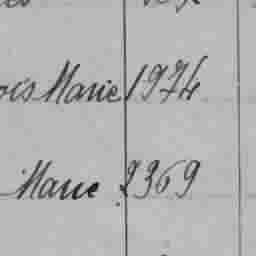 ois Marie 1974
Marie 2369